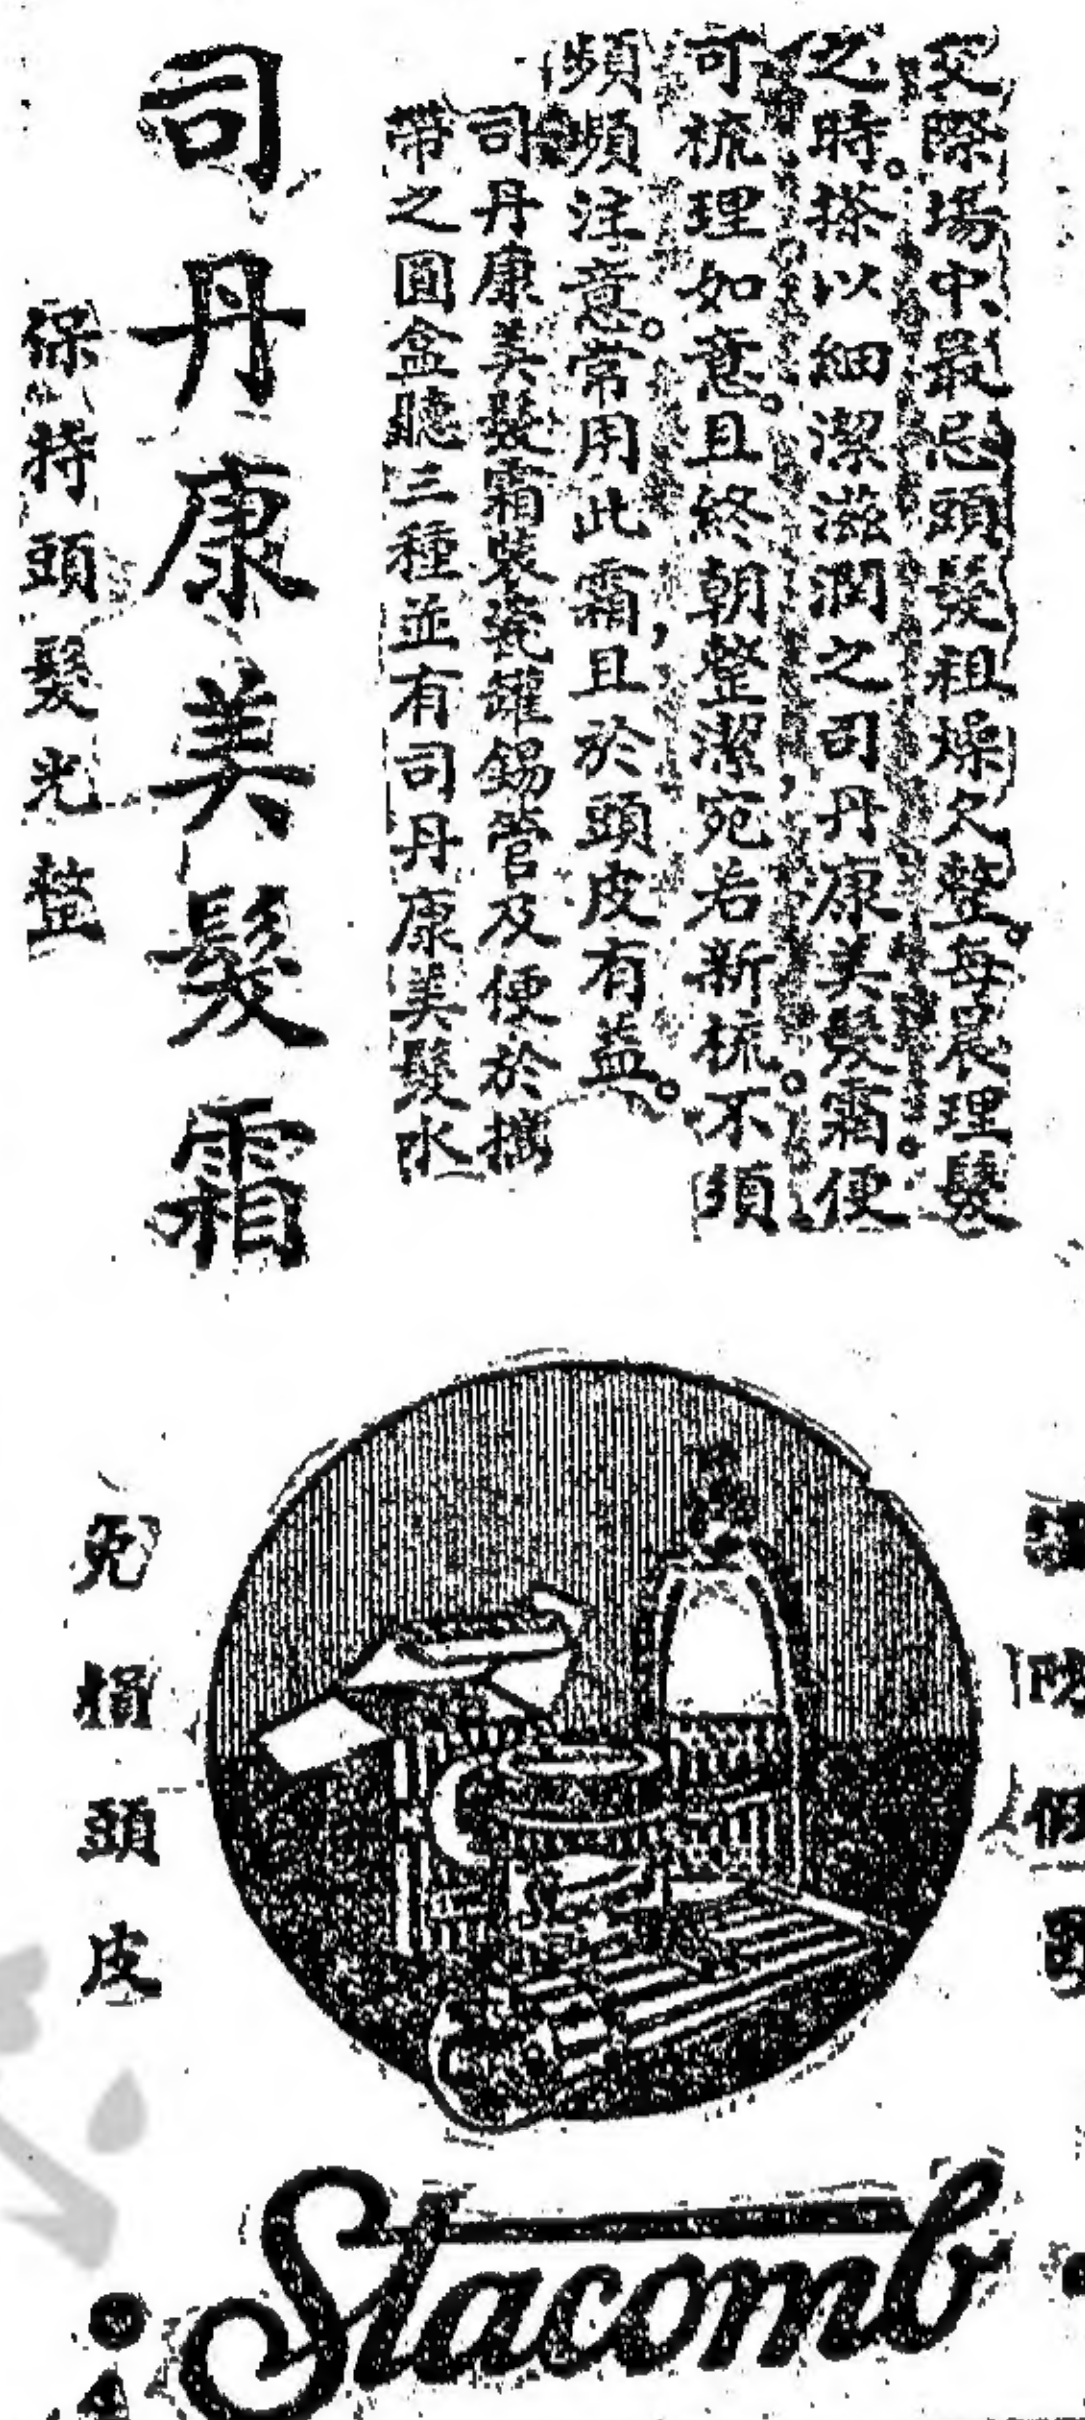 交際場中最忌頭髮粗燥欠整。每晨理髮
之時。搽以細潔滋潤之司丹康美髮霜。便
可梳理如意。且終朝整潔宛若新梳。不須
頻頻注意。常用此霜且於頭皮有益。
司丹康美髮霜裝瓷罐錫管及便於攜
帶之圓盒聽三種並有司丹康美髮水
司丹康美髮霜
保持頭髮光整
防假
免損頭皮
Stacomb